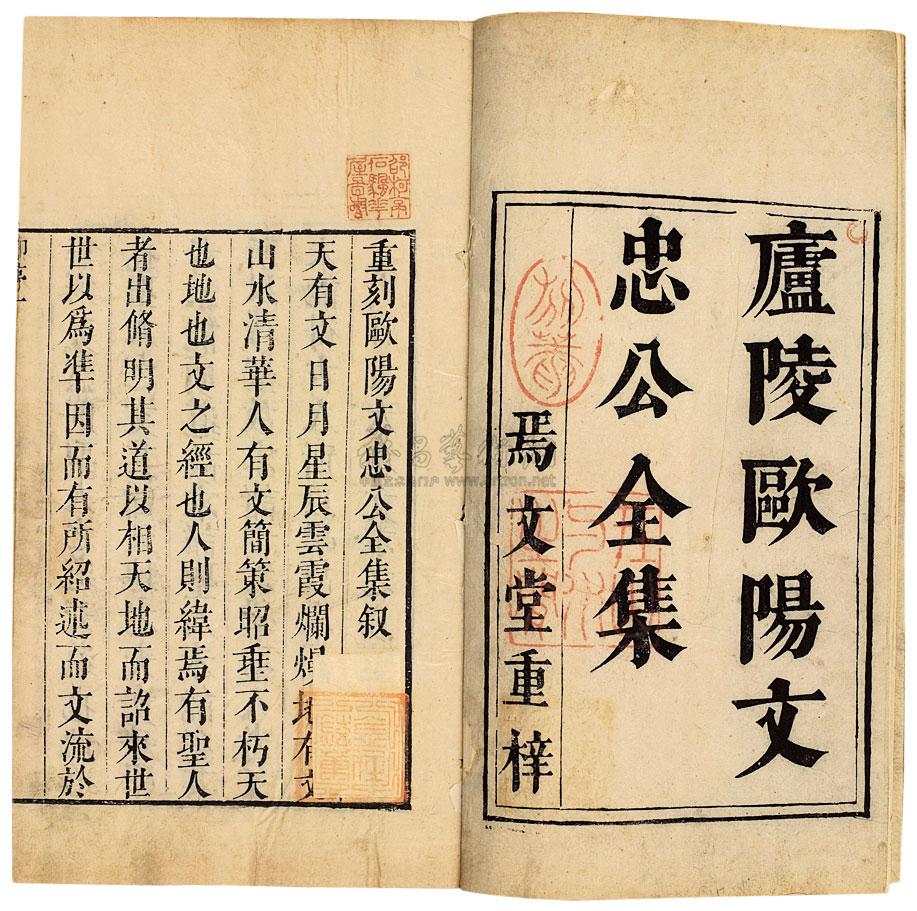 廬陵歐陽文
忠公全集
焉文堂重梓
重刻歐陽文忠公全集叙
天有文日月星辰雲霞爛燦地有文
山水清華人有文簡策昭垂不朽天
也地也文之經也人則緯焉有聖人
者出脩明其道以相天地而詔來世
世以爲準因而有所紹述而文流於
www.artron.net